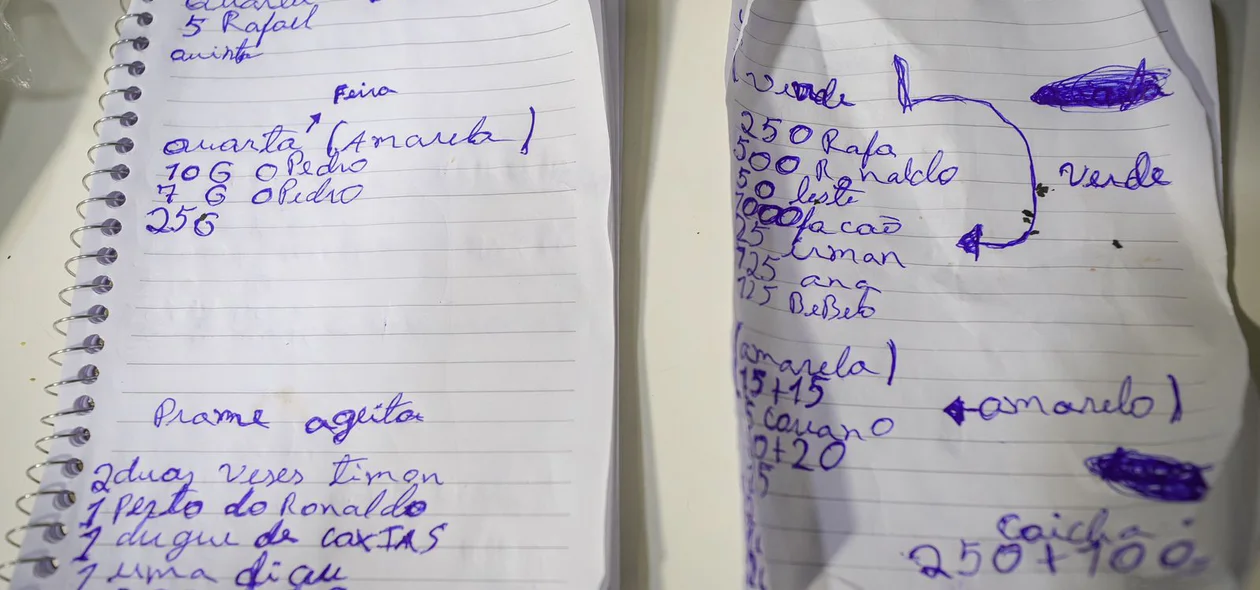 5 Rafael
quinta
Feira
quarta (Amarela)
10 G O Pedro
7 G O Pedro
25G
Prame ageita
2 duas veses timon
1 Perto do Ronaldo
1 duque de caxIAS
1 uma
(Verde
250 Rafa
500 Ronaldo
50 leste
1000 facão
25 irman
125 ana
125 BeBeto
Verde
(amarela)
15+15
amarelo)
0+20
Caicha:
250+100